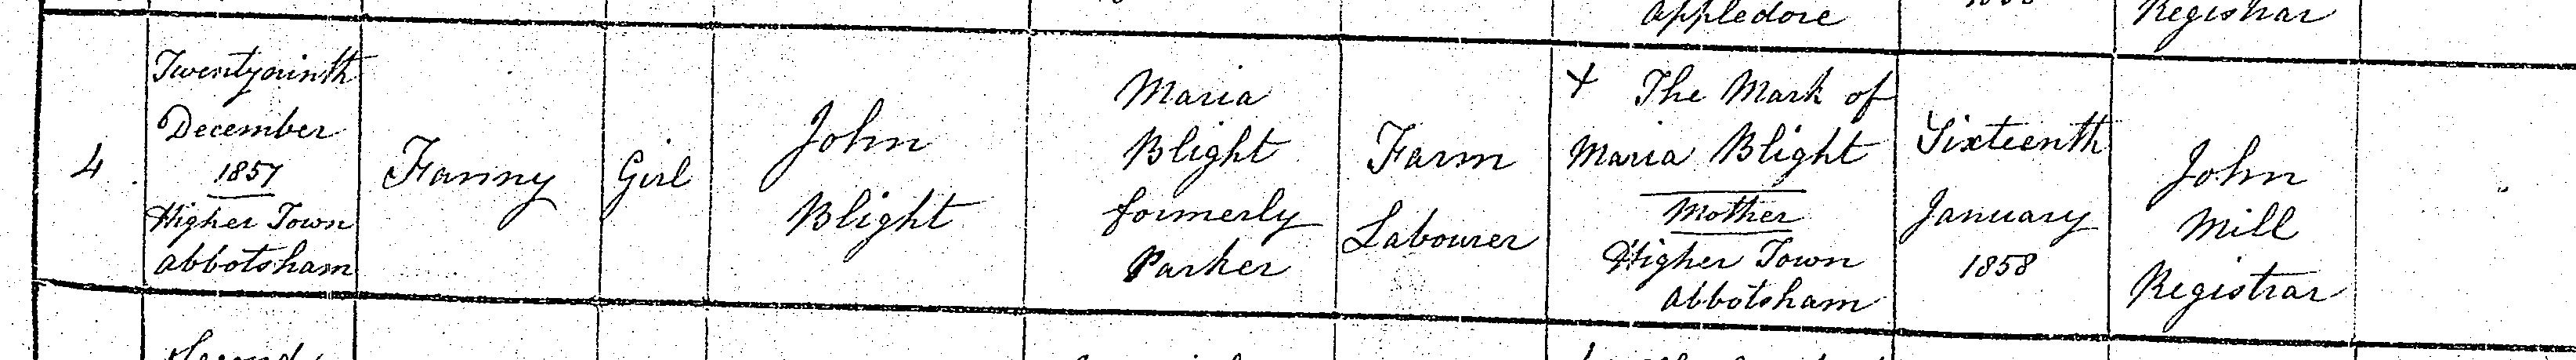 Appledore
Registrar
4
Twentyninth
December
1857
Higher Town
Abbotsham
Fanny
Girl
John
Blight
Maria
Blight
formerly
Parker
Farm
Labourer
X The Mark of
Maria Blight
Mother
Higher Town
Abbotsham
Sixteenth
January
1858
John
Mill
Registrar
Second